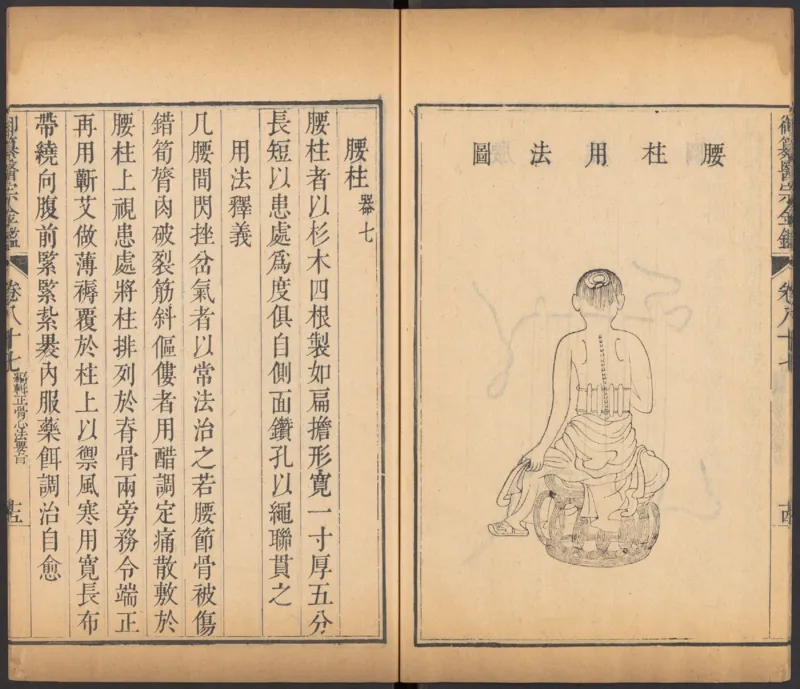 御纂醫宗金鑑 卷八十七 十四
腰柱用法圖
腰柱 器七
腰柱者以杉木四根製如扁擔形寬一寸厚五分
長短以患處爲度俱自側面鑽孔以繩聯貫之
用法釋義
凡腰間閃挫岔氣者以常法治之若腰節骨被傷
錯筍膂肉破裂筋斜傴僂者用醋調定痛散敷於
腰柱上視患處將柱排列於脊骨兩旁務令端正
再用蘄艾做薄褥覆於柱上以禦風寒用寬長布
帶繞向腹前緊緊紮裹內服藥餌調治自愈
御纂醫宗金鑑 卷八十七 編輯正骨心法要旨 十五